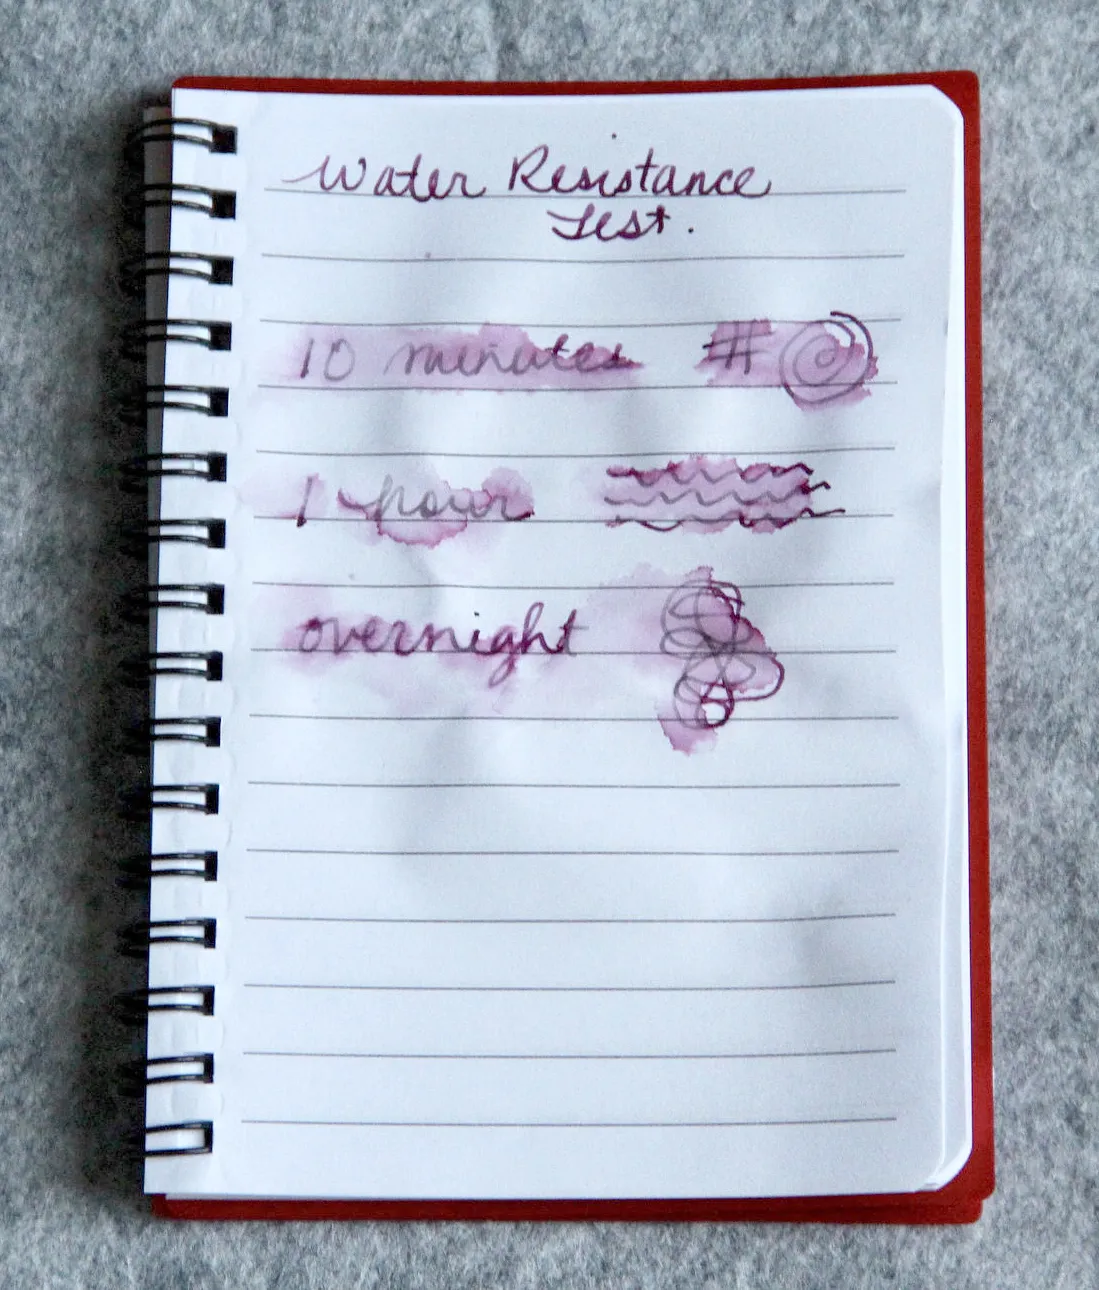 Water Resistance
Test.
10 minutes #
1 hour
overnight